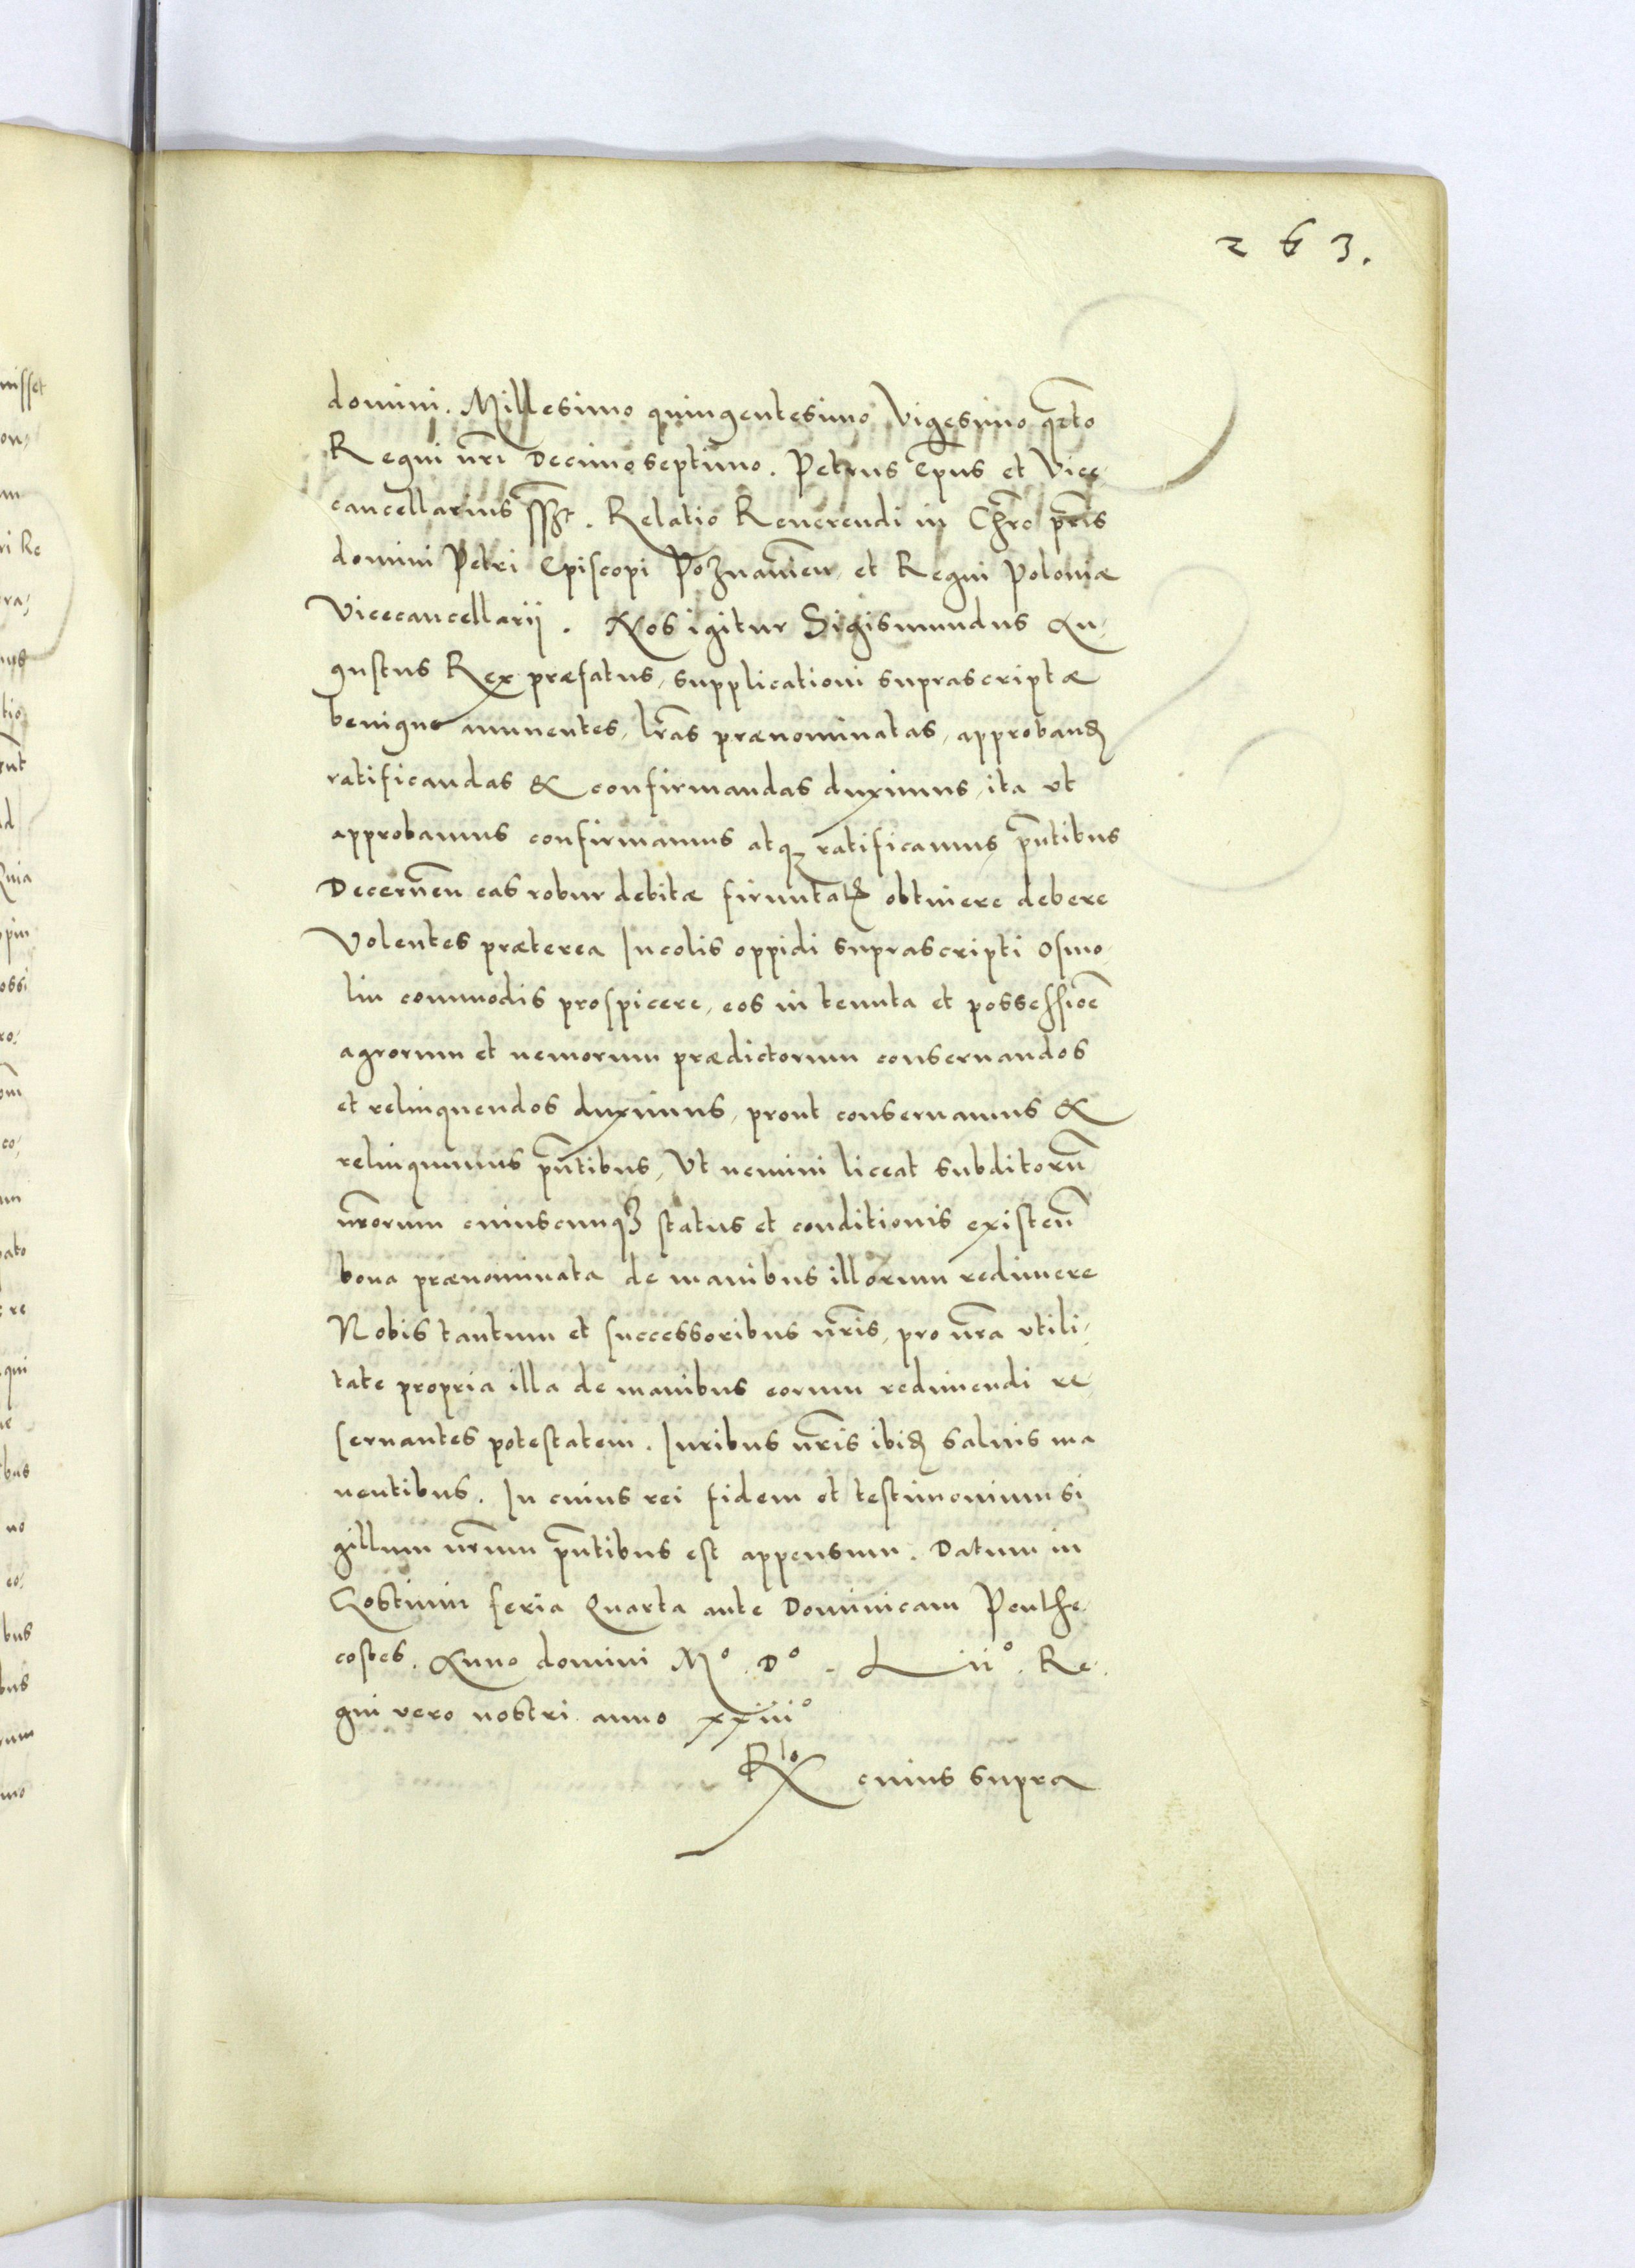 263.
domini. Millesimo quingentesimo Vigesimo qrto
Regni nri Decimo septimo. Petrus Epus et Vice
cancellarius sszt. Relatio Reuerendi in Chro pris
domini Petri Episcopi Poznanien, et Regni Poloniæ
Vicecancellarij. Nos igitur Sigismundus Au,
gustus Rex præfatus, supplicationi suprascriptæ
benigne annuentes, lras prænominatas, approband
ratificandas & confirmandas duximus, ita vt
approbamus confirmamus atq; ratificamus pntibus
Decernen eas robur debitæ firmitat obtinere debere
Volentes præterea Incolis oppidi suprascripti Osmo,
lin commodis prospicere, eos in tenuta et possessioe
agrorum et nemorum prædictorum conseruandos
et relinquendos duximus, prout conseruamus &
relinquimus pntibus, Vt nemini liceat subditoru
nrorum cuiuscunq3 status et conditionis existen
bona prænominata de manibus illorum redimere
Nobis tantum et successoribus nris, pro nra vtili,
tate propria illa de manibus eorum redimendi re,
seruantes potestatem. Iuribus nris ibid saluis ma
nentibus. In cuius rei fidem et testimonium si
gillum nrum pntibus est appensum. Datum in
Gostinin feria Quarta ante Dominicam Penthe,
costes. Anno domini Mº. Dº. Liiº. Re,
gni vero nostri anno xxiiiº
Rlo cuius supra